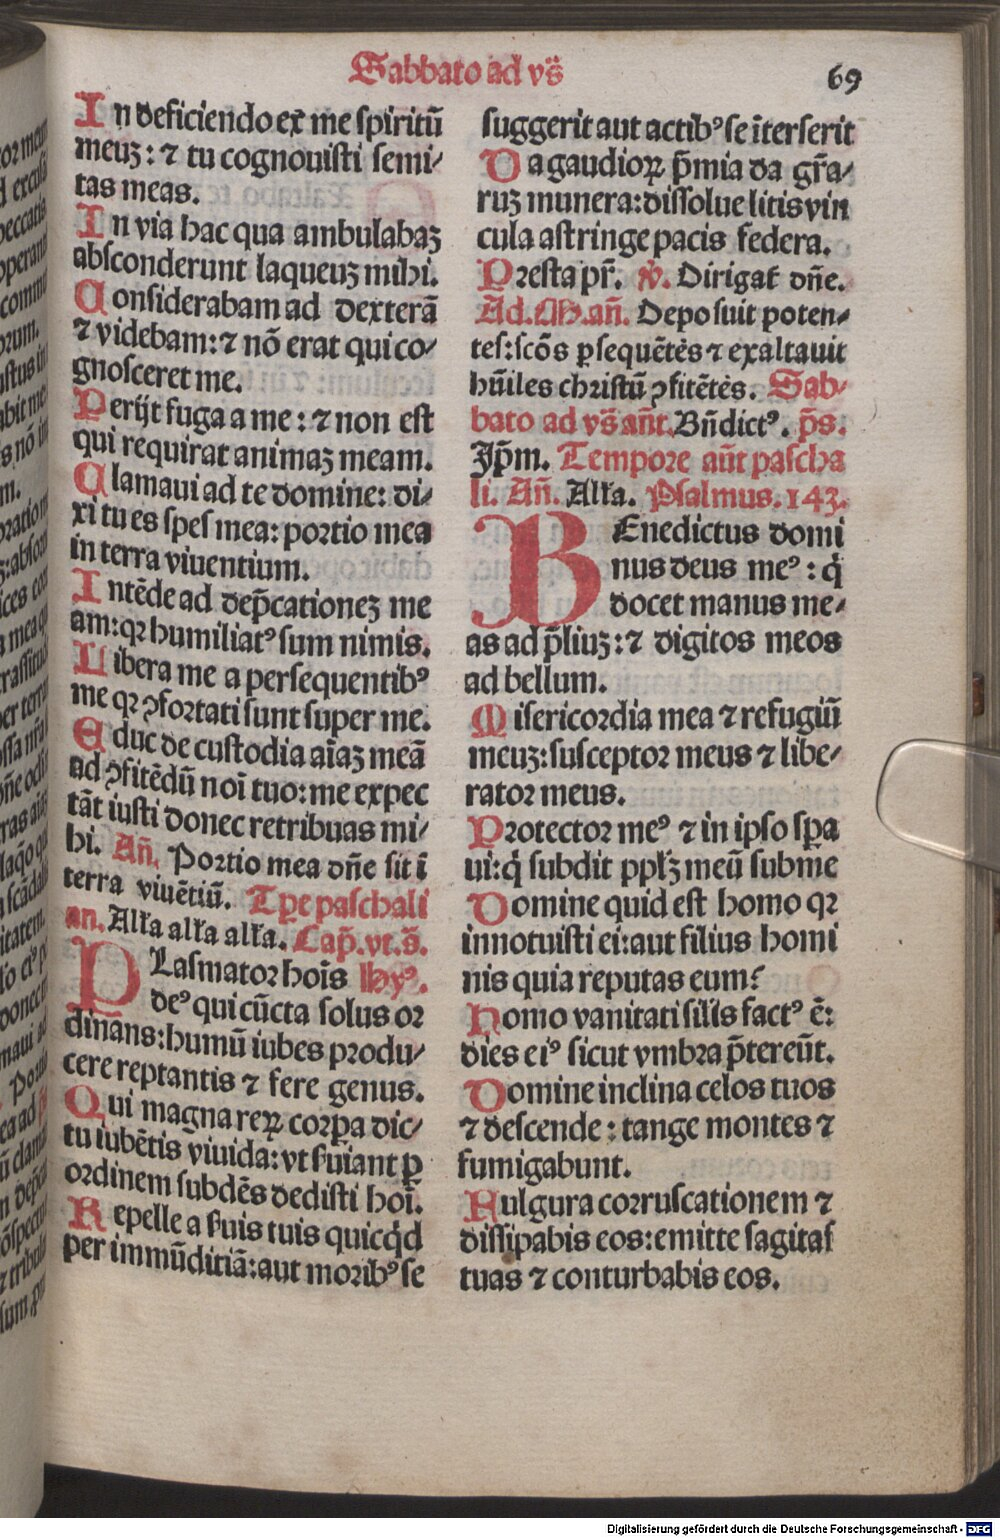 Sabbato ad vs̄
69
In deficiendo ex me spiritū
meuꝫ: ⁊ tu cognouisti semi/
tas meas.
In via hac qua ambulabaꝫ
absconderunt laqueuꝫ mihi.
Considerabam ad dexterā
⁊ videbam: ⁊ nō erat qui co/
gnosceret me.
Perijt fuga a me: ⁊ non est
qui requirat animaꝫ meam.
Clamaui ad te domine: di/
xi tu es spes mea: portio mea
in terra viuentium.
Intēde ad dep̄cationeꝫ me
am: qꝛ humiliatꝰ sum nimis.
Libera me a persequentibꝰ
me qꝛ ꝯfortati sunt super me.
Educ de custodia aīaꝫ meā
ad ꝯfitēdū noī tuo: me expec
tāt iusti donec retribuas mi/
hi. Añ. Portio mea dn̄e sit ī
terra viuētiū. Tp̄e paschali
an. Alła alła alła. Cap̄. vt. s̄.
PLasmator hoīs hyꝰ.
deꝰ qui cūcta solus or
dinans: humū iubes produ/
cere reptantis ⁊ fere genus.
Qui magna reꝝ corꝑa dic/
tu iubētis viuida: vt ſuiant ꝑ
ordinem subdēs dedisti hoī.
Repelle a ſuis tuis quicq̄d
per immūditiā: aut moribꝰ se
suggerit aut actibꝰ se īterserit
Da gaudioꝝ p̄mia da gr̄a/
ruꝫ munera: dissolue litis vin
cula astringe pacis federa.
Presta pr̄. ℣. Dirigat̄ dn̄e.
Ad. M. an̄. Deposuit poten/
tes: scōs ꝑsequētēs ⁊ exaltauit
hūiles christū ꝯfitētēs. Sab/
bato ad vs̄ an̄t. Bn̄dictꝰ. p̄s.
Ip̄m. Tempore aūt pascha
li. An̄. Alła. Psalmus. 143.
BEnedictus domi
nus deus meꝰ: q̄
docet manus me/
as ad p̄liuꝫ: ⁊ digitos meos
ad bellum.
Misericordia mea ⁊ refugiū
meuꝫ: susceptor meus ⁊ libe/
rator meus.
Protector meꝰ ⁊ in ipso spa
ui: q̄ subdit ppl̄ꝫ meū sub me
Domine quid est homo qꝛ
innotuisti ei: aut filius homi
nis quia reputas eum?
Homo vanitati sil̄is factꝰ ē:
dies eiꝰ sicut vmbra p̄tereūt.
Domine inclina celos tuos
⁊ descende: tange montes ⁊
fumigabunt.
Fulgura corruscationem ⁊
dissipabis eos: emitte sagitas
tuas ⁊ conturbabis eos.
Digitalisierung gefördert durch die Deutsche Forschungsgemeinschaft - DFG